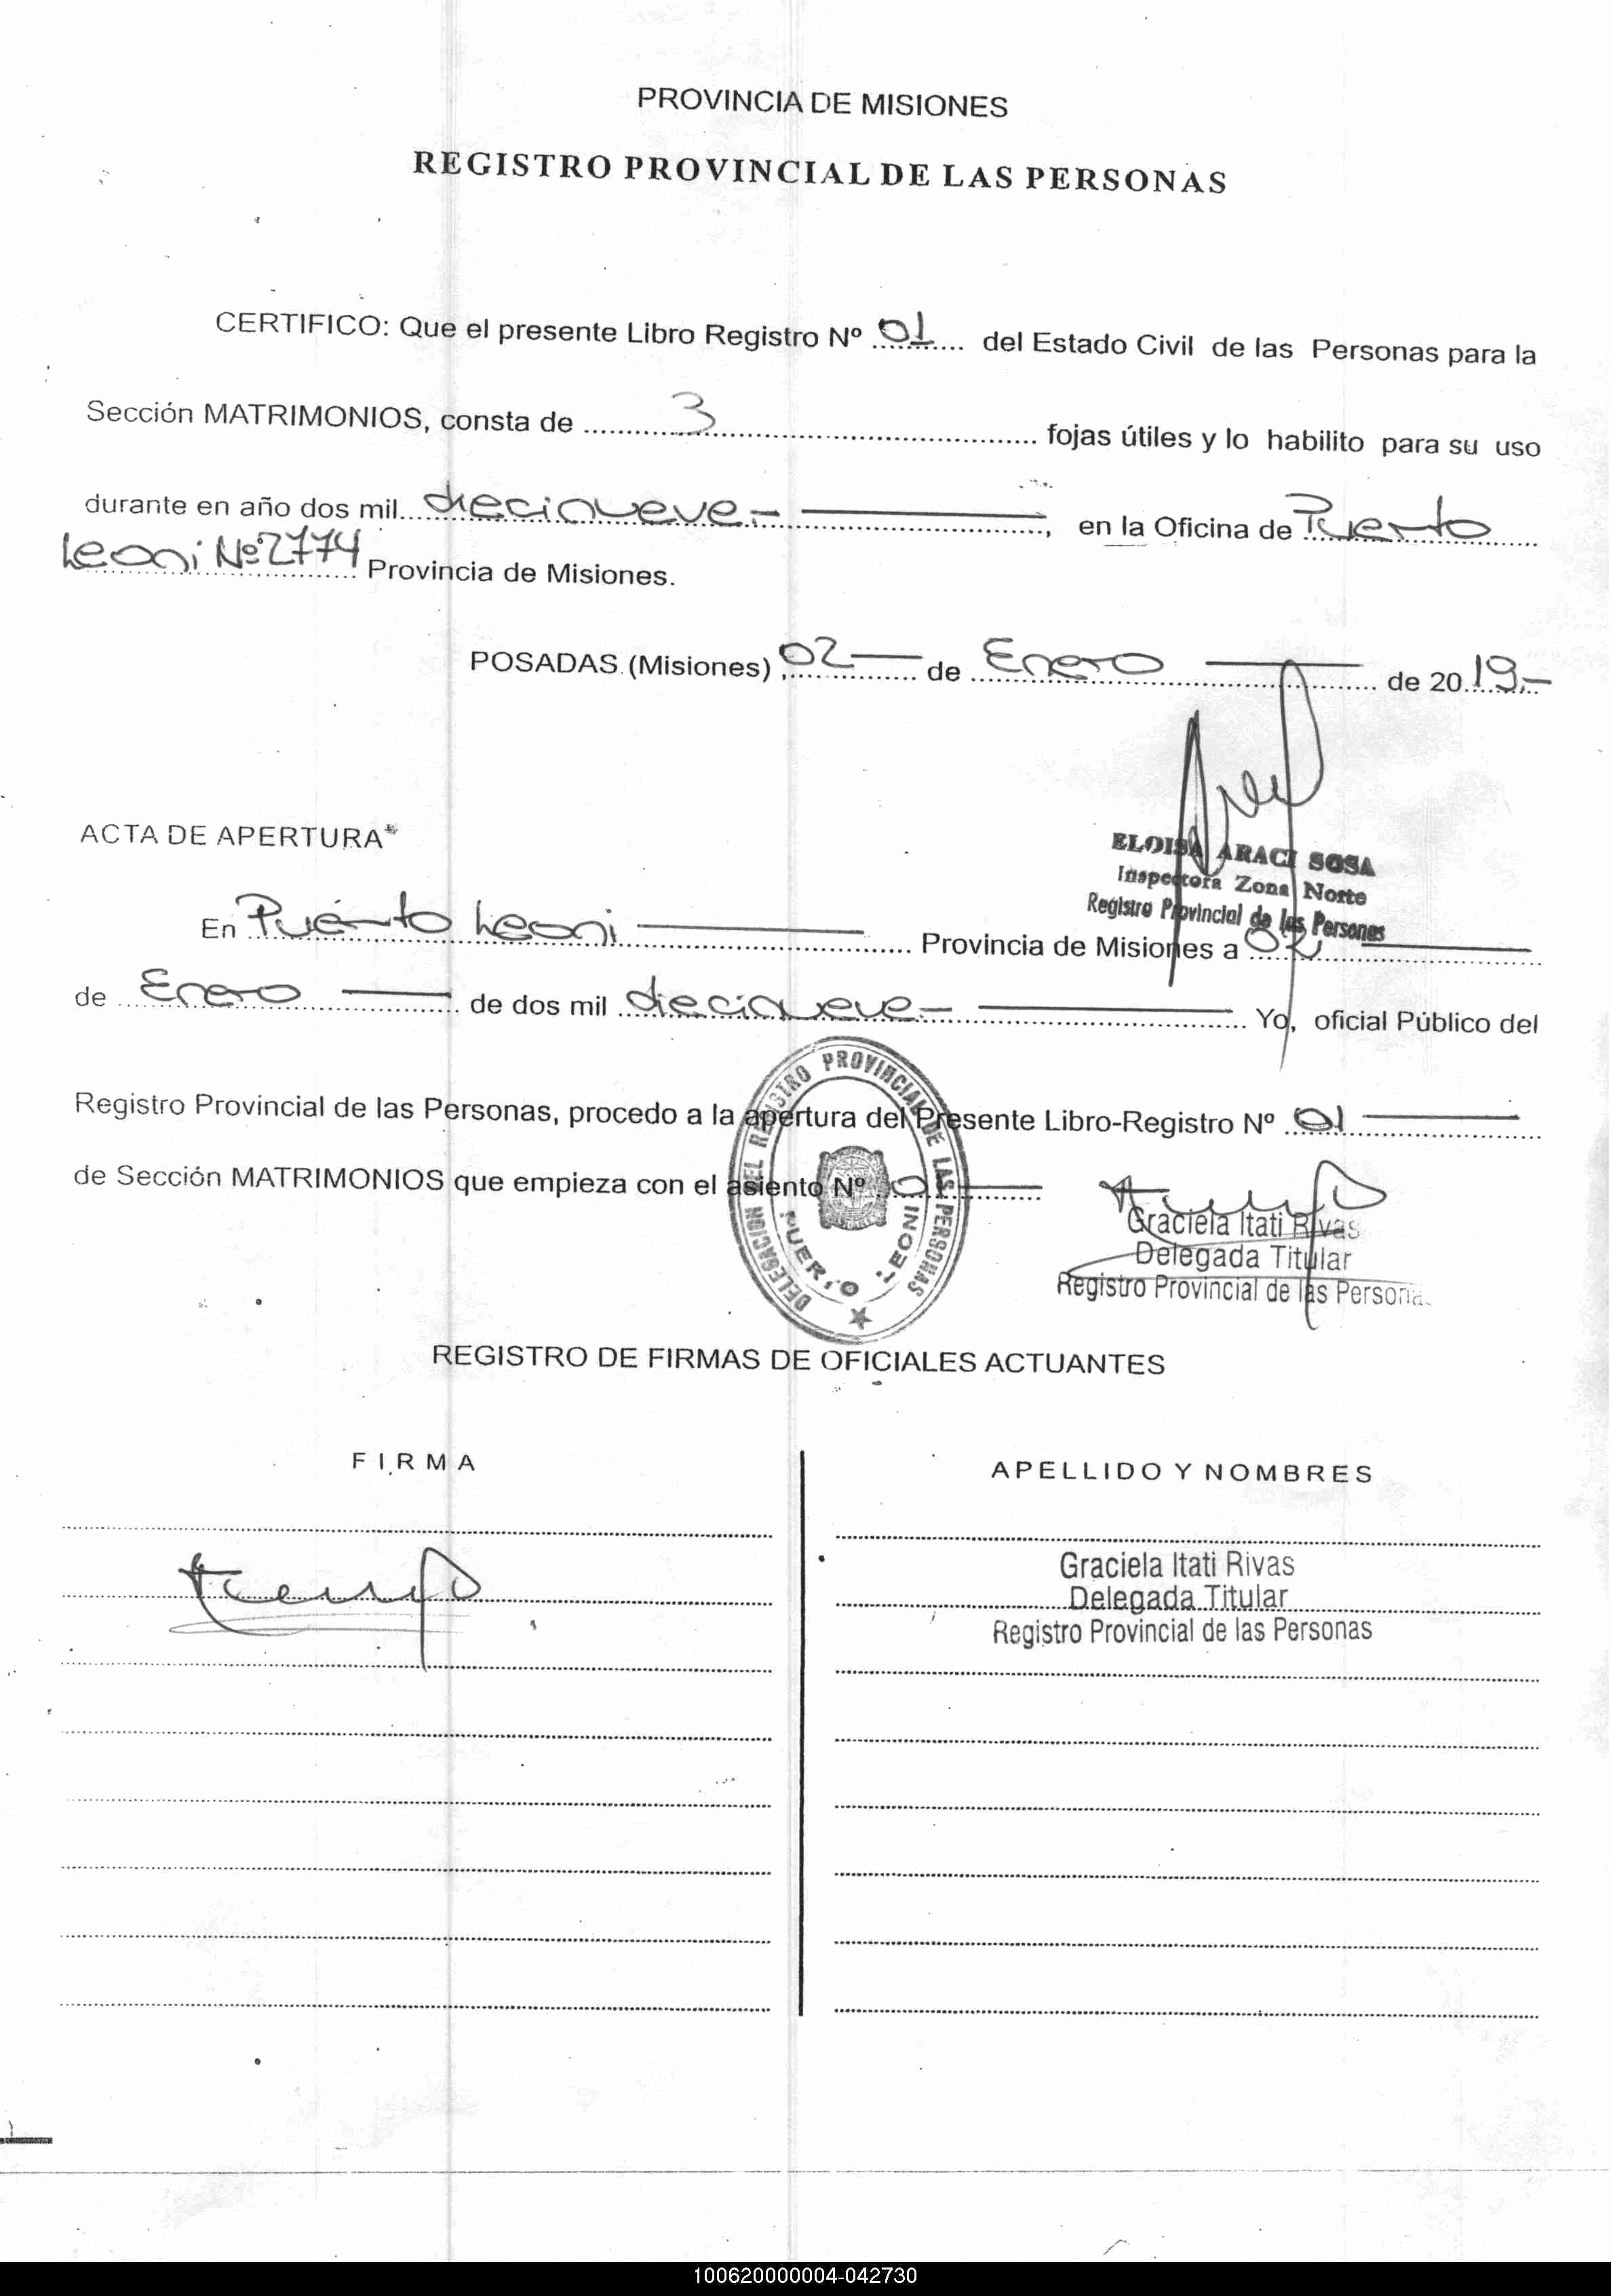 PROVINCIA DE MISIONES
REGISTRO PROVINCIAL DE LAS PERSONAS
CERTIFICO: Que el presente Libro Registro Nº 01 del Estado Civil de las Personas para la
Sección MATRIMONIOS, consta de 3 fojas útiles y lo habilito para su uso
durante en año dos mil diecinueve.- en la Oficina de Puerto
Leoni Nº 2774 Provincia de Misiones.
POSADAS (Misiones), 02 de Enero de 2019.-
ELOISA ARACI SOSA
Inspectora Zona Norte
Registro Provincial de las Personas
ACTA DE APERTURA
En Puerto Leoni Provincia de Misiones a 02
de Enero de dos mil diecinueve.- Yo, oficial Público del
Registro Provincial de las Personas, procedo a la apertura del Presente Libro-Registro Nº 01
de Sección MATRIMONIOS que empieza con el asiento Nº 01
DELEGACION DEL REGISTRO PROVINCIAL DE LAS PERSONAS
PUERTO LEONI
Graciela Itati Rivas
Delegada Titular
Registro Provincial de las Personas
REGISTRO DE FIRMAS DE OFICIALES ACTUANTES
FIRMA
APELLIDO Y NOMBRES
Graciela Itati Rivas
Delegada Titular
Registro Provincial de las Personas
100620000004-042730